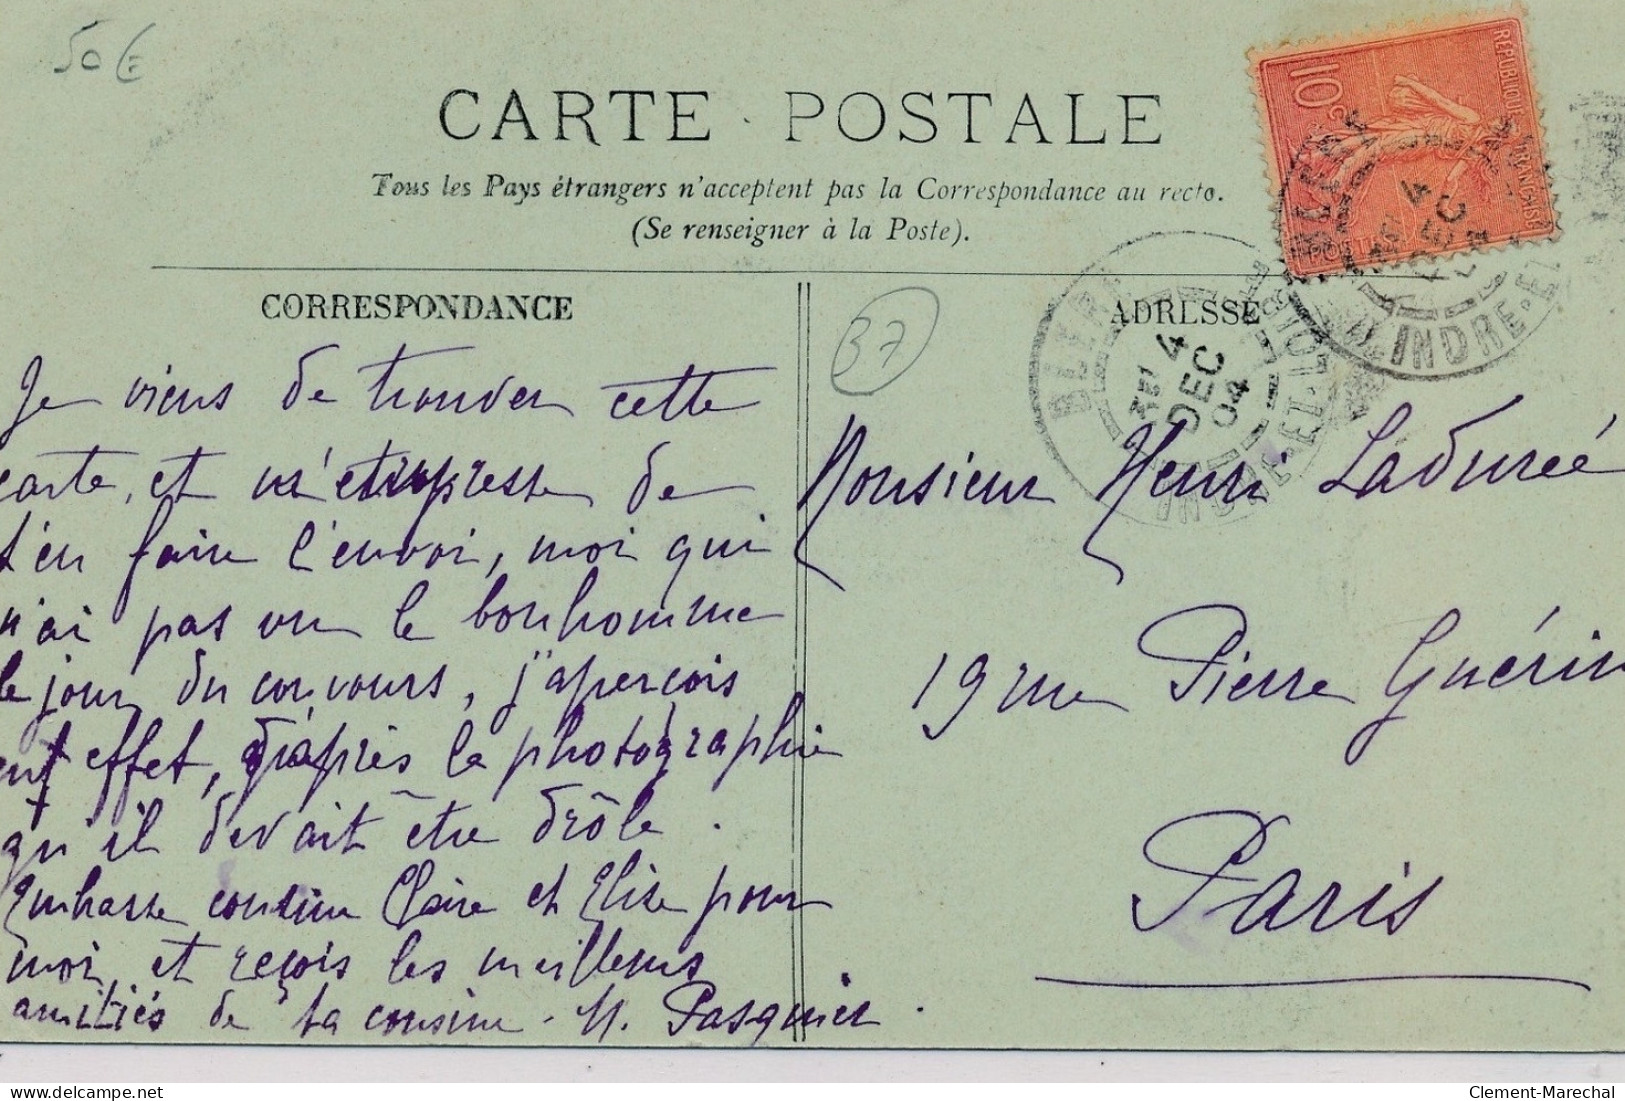 50€
CARTE POSTALE
Tous les Pays étrangers n'acceptent pas la Correspondance au recto.
(Se renseigner à la Poste).
CORRESPONDANCE
Je viens de trouver cette
carte, et m'empresse de
t'en faire l'envoi, moi qui
n'ai pas vu le bonhomme
le jour du concours, j'aperçois
en effet, d'après la photographie
qu'il devait être drôle.
Embrasse cousine Claire et Elise pour
moi et reçois les meilleures
amitiés de ta cousine - M. Pasquier.
37
ADRESSE
Monsieur Henri Laduréé
19 rue Pierre Guérin
Paris
REPUBLIQUE FRANÇAISE
10c
POSTES
BLERE
4
DEC
04
INDRE-ET-LOIRE
BLERE
4
DEC
INDRE-ET
delcampe.net
Clement-Marechal